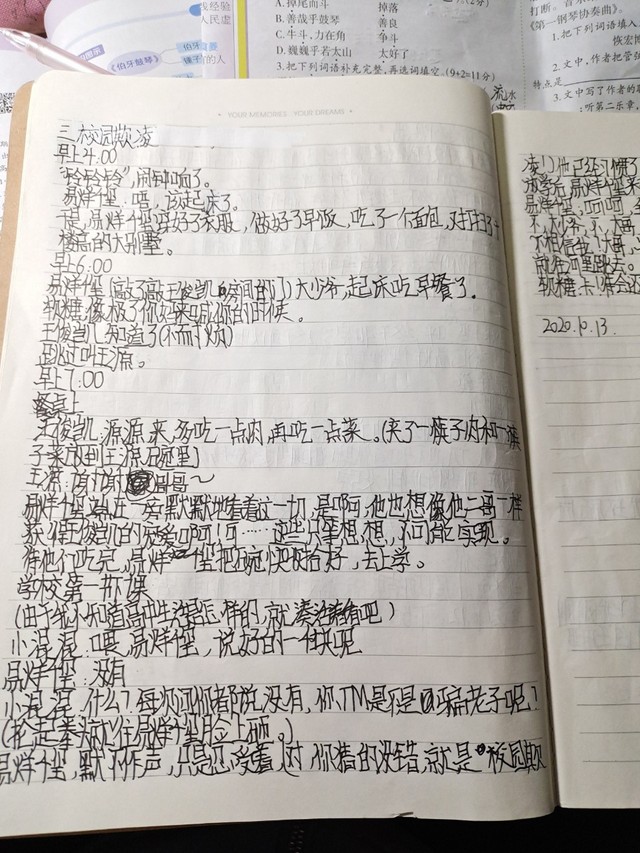 找经验
人民虚
伯牙
《伯牙鼓琴》
锤子
的人
A.掉尾而斗 掉落
B.善哉乎鼓琴 善良
C.牛斗,力在角 争斗
D.巍巍乎若太山 太好了
3.把下列词语补充完整,再选词填空。(9+2=11分)
流水
打断。
《第一钢琴协奏曲》。
1.把下列词语填入
恢宏博
2.文中,作者把管弦
特点是
3.文中写了作者的联
听第二乐章,
YOUR MEMORIES · YOUR DREAMS
三、校园欺凌
早上4:00
“铃铃铃”,闹钟响了。
易烊千玺:唔,该起床了。
于是,易烊千玺穿好了衣服,做好了早饭,吃了一个面包,
楼高的大别墅。
早上6:00
易烊千玺(敲了敲王俊凯房间的门)大少爷,起床吃早餐了。
软糖:像极了你妈来叫你的时候。
王俊凯:知道了(不耐烦)
到过叫王源。
早上7:00
餐桌上
王俊凯:源源,来,多吃一点肉,再吃一点菜。(夹了一筷子肉和一筷
子菜放到王源碗里)
王源:谢谢哥哥~
易烊千玺站在一旁默默地看着这一切,是啊,他也想像他二哥一样
获得王俊凯的宠爱啊!可……这些只是想想,不可能实现。
待他们吃完,易烊千玺把碗筷收拾好,去上学。
学校第一节课
(由于我不知道高中生活是怎样的,就凑活着看吧)
小混混:喂,易烊千玺,说好的一百块呢
易烊千玺:没有
小混混:什么?每次问你都说没有,你TM是不是骗老子呢?
(抡起拳头就往易烊千玺脸上砸。)
易烊千玺,默不作声,只是忍受着,对,你猜的没错,就是“校园欺
凌!)他已经习惯了
易烊千玺
2020.10.13.